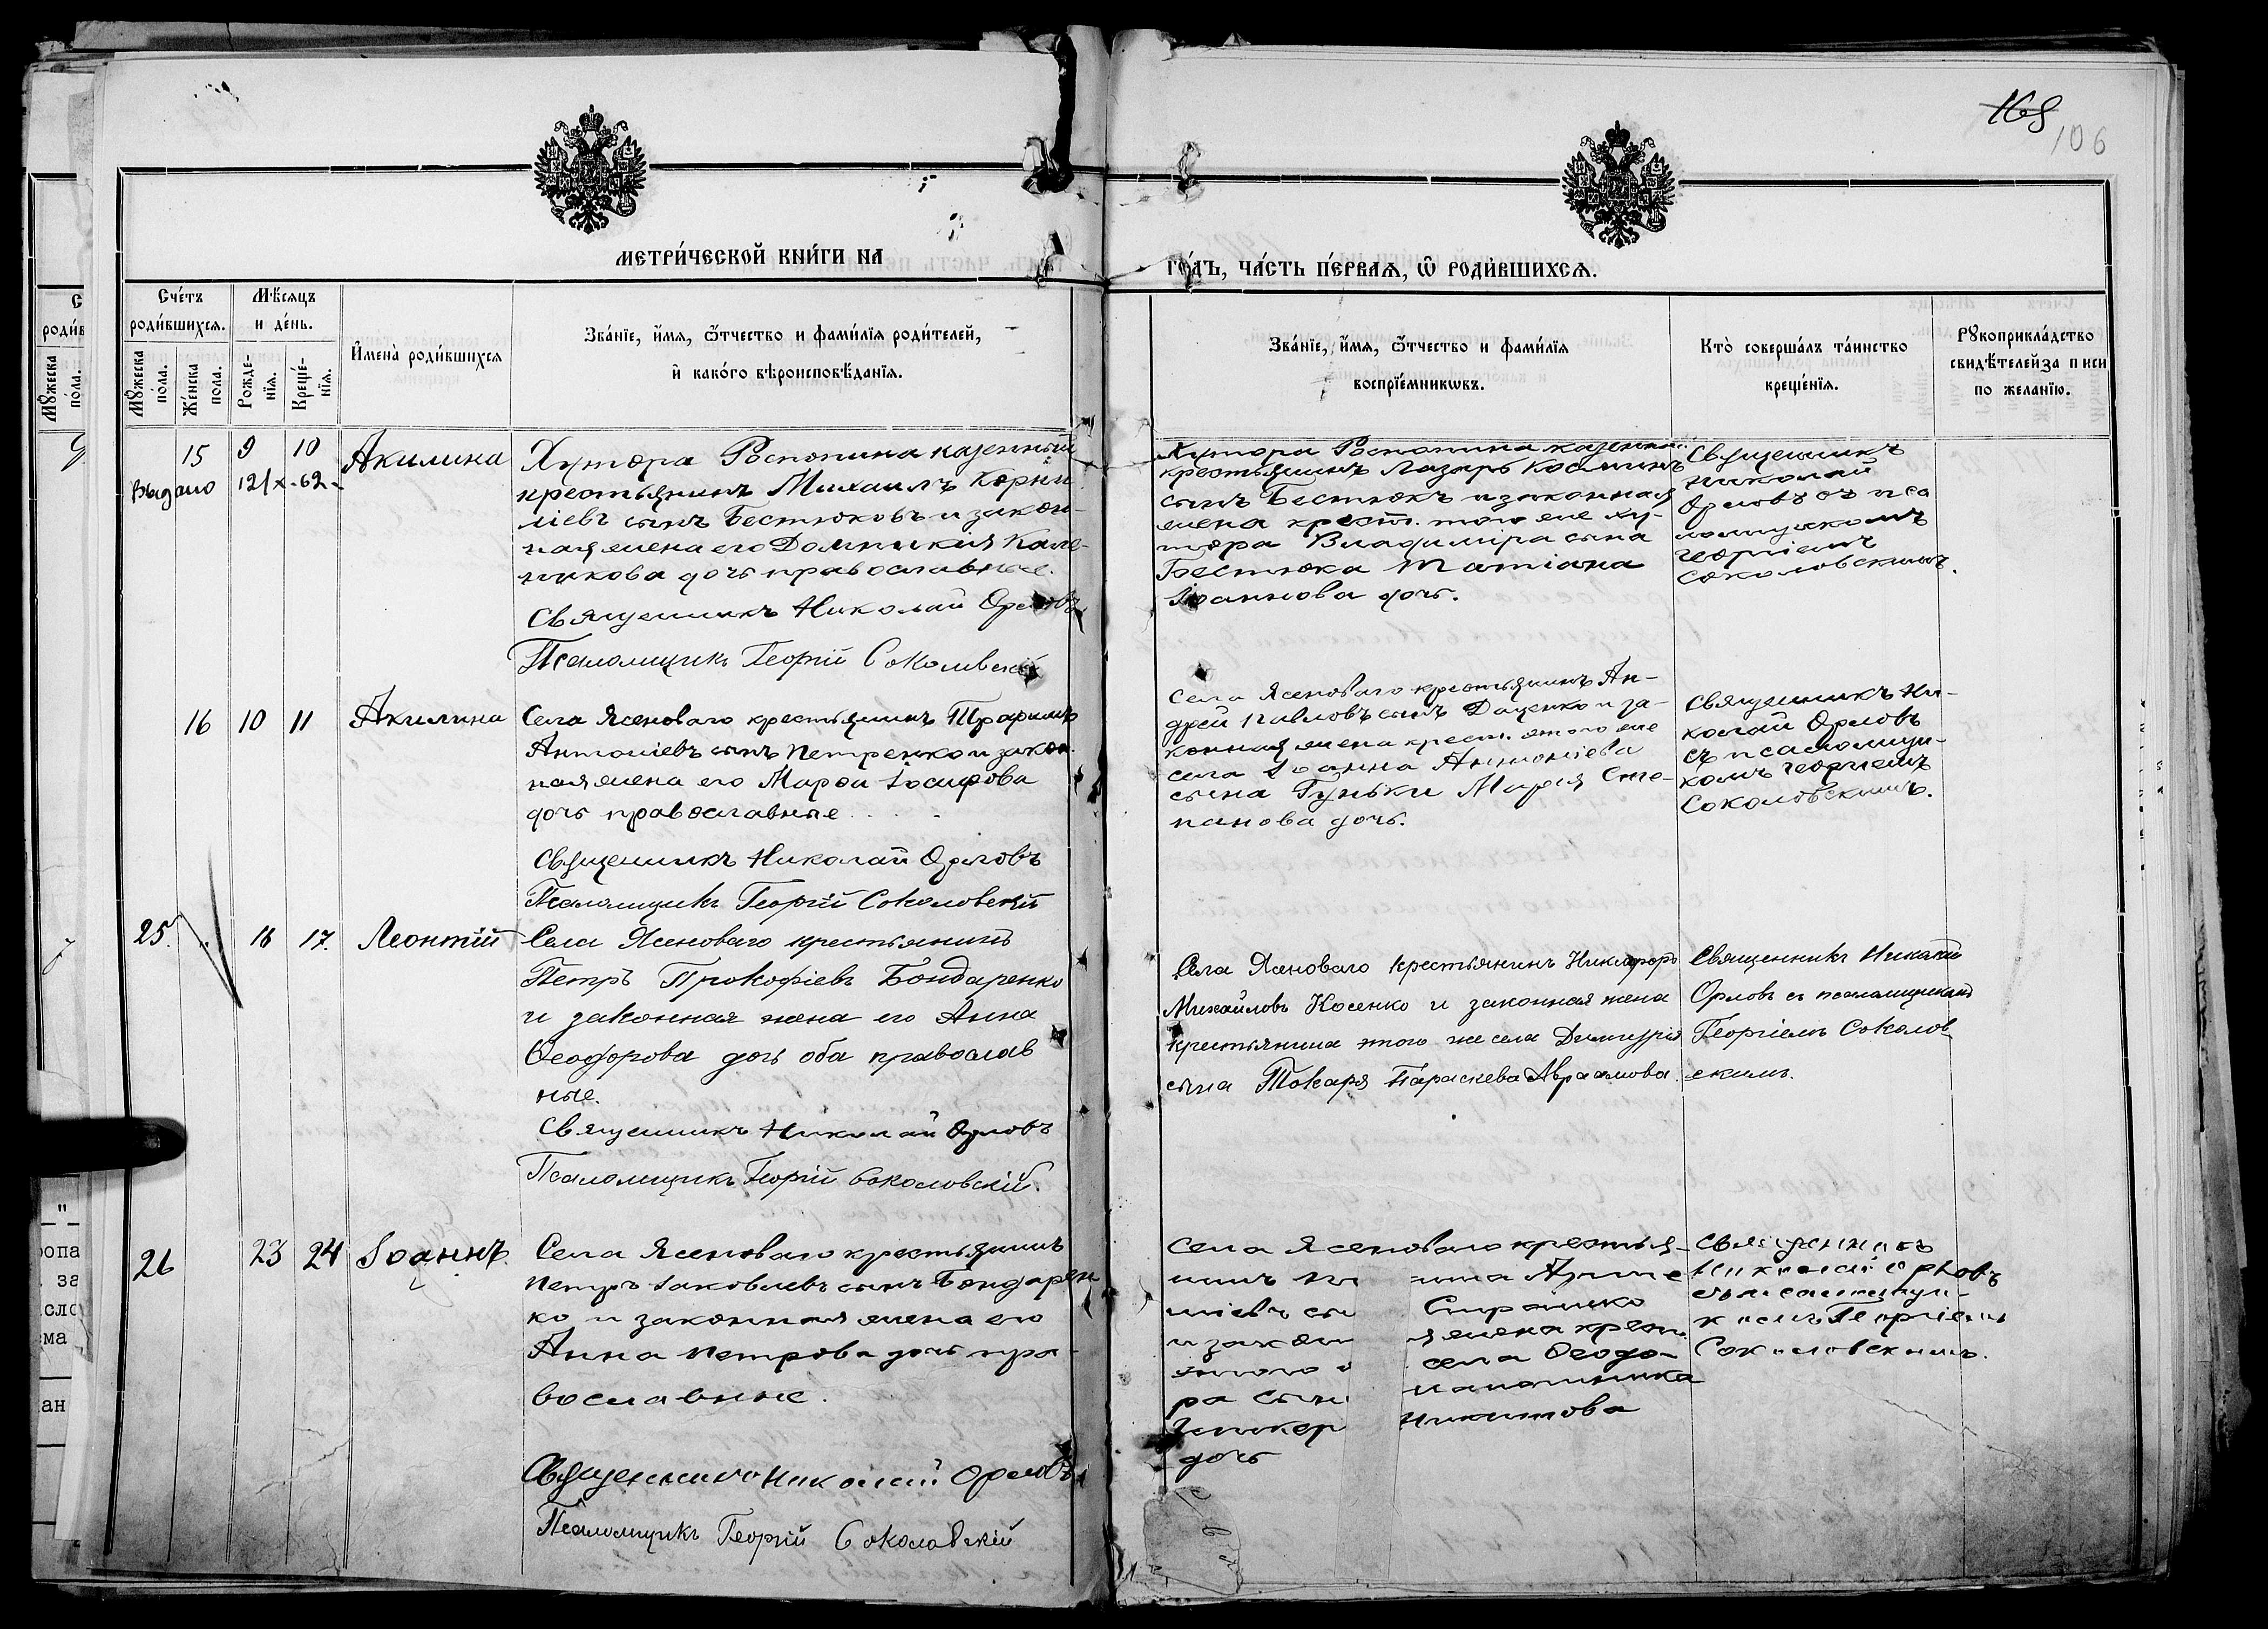 169
106
МЕТРИ́ЧЕСКОЙ КНИ́ГИ НА
ГО́ДЪ, ЧА́СТЬ ПЕ́РВАѦ, Ѿ РОДИ́ВШИХСѦ.
Сче́тъ роди́вшихсѧ.
Мꙋ́жеска по́ла.
Же́нска пола.
Мѣ́сѧцъ и де́нь.
Рожде-нїѧ.
Креще́-нїѧ.
И҆мена̀ роди́вшихсѧ
Зва́нїе, и҆́мѧ, ѻ҆́тчество и фами́лїѧ роди́телей,
и҆ како́гѡ вѣроисповѣ́данїѧ.
Зва́нїе, и҆́мѧ, ѻ҆́тчество и фами́лїѧ
воспрїе́мникѡвъ.
Кто̀ соверша́лъ та́инство
креще́нїѧ.
Рꙋкоприкла́дство
свидѣ́телей за п иси
по жела́нїю.
15 9 10 Акилина
Выдано 121 х-62-
Хутора Роспопина казенный
крестьянинъ Михаилъ Корни
ліевъ сынъ Бестюковъ и закон-
ная жена его Домникія Кале-
никова дочь православные.
Священникъ Николай Орловъ
Псаломщикъ Георгій Соколовскій
Хутора Роспопина казенный
крестьянинъ Лазарь Косминъ
сынъ Бестюкъ и законная
жена крест. того же ху-
тора Владиміра сына
Бестюка Татіана
Іоаннова дочь.
Священникъ
Николай
Орловъ съ пса
ломщикомъ
Георгіемъ
Соколовскимъ.
16 10 11 Акилина
Села Ясеноваго крестьянинъ
Антоніевъ сынъ Петренко и закон
ная жена его Марѳа Іосифова
дочь православные
Священникъ Николай Орловъ
Псаломщикъ Георгій Соколовскій
Села Ясеноваго крестьянинъ Ан-
дрей Павловъ сынъ Даценко и за-
конная жена крест. этого же
села Іоанна Антоніева
сына Гуньки Марія Сте-
панова дочь.
Священникъ Ни-
колай Орловъ
съ псаломщи-
комъ Георгіемъ
Соколовскимъ.
25. 16 17. Леонтій
Села Ясеноваго крестьянинъ
Петръ Прокофіевъ Бондаренко
и законная жена его Анна
Ѳеодорова дочь оба православ
ные.
Священникъ Николай Орловъ
Псаломщикъ Георгій Соколовскій.
Села Ясеноваго крестьянинъ Никифоръ
Михайловъ Косенко и законная жена
крестьянина этого же села Димитрія
сына Токаря Параскева Авраамова.
Священникъ Николай
Орловъ съ псаломщикомъ
Георгіемъ Соколов
скимъ.
26 23 24 Іоаннъ
Села Ясеноваго крестьянинъ
Петръ Іаковлевъ сынъ Бондарен
ко и законная жена его
Анна Петрова дочь пра-
вославные.
Священникъ Николай Орловъ
Псаломщикъ Георгій Соколовскій
Села Ясеноваго крестья-
села Ѳеодо-
ра сын
Никитова
дочь
Священникъ
Николай Орловъ
съ псаломщи-
комъ Георгіемъ
Соколовскимъ.